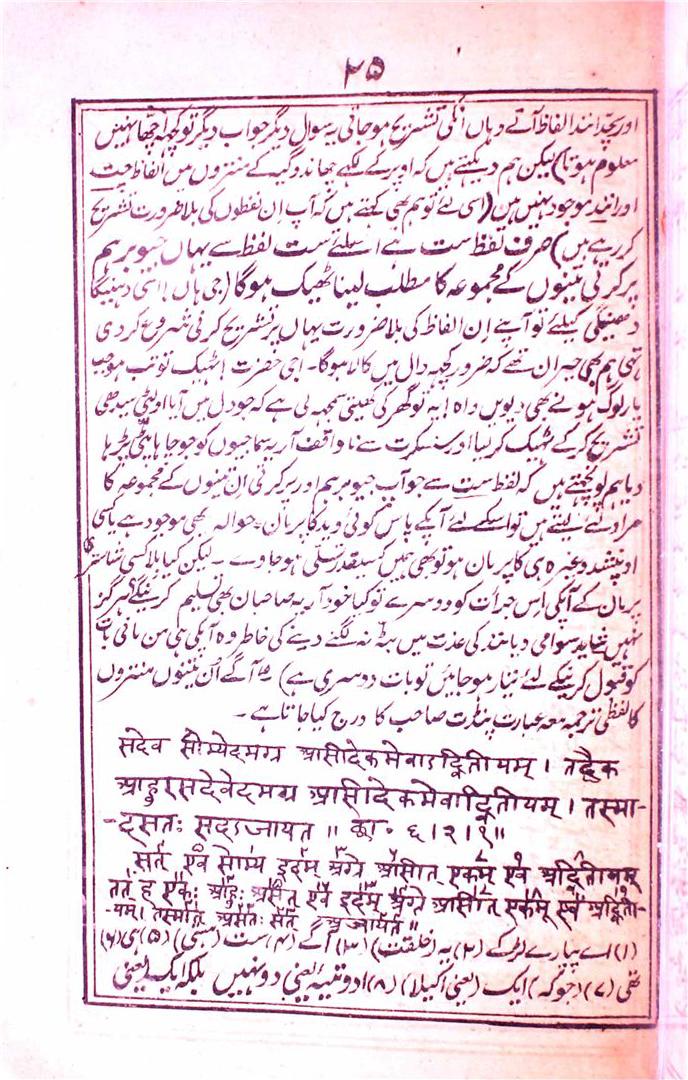 ۲۵
اور چد انند الفاظ آتے وہاں انکی تشریح ہو جاتی یہ سوال دیگر جواب دیگر تو کچھ اچھا نہیں
معلوم ہوتا) لیکن ہم دیکھتے ہیں کہ اوپر کے لکھے چھاندوگیہ کے منتروں میں الفاظ چت
اور انند موجود نہیں ہیں (اسی لئے تو ہم بھی کہتے ہیں کہ آپ ان لفظوں کی بلا ضرورت تشریح
کر رہے ہیں) صرف لفظ ست ہے اسلئے ست لفظ سے یہاں جیو برہم
پرکرتی تینوں کے مجموعہ کا مطلب لینا ٹھیک ہوگا (جی ہاں اسی دہینگا
دھینگی کیلئے تو آپنے ان الفاظ کی بلا ضرورت یہاں پر تشریح کرنی شروع کر دی
تھی ہم بھی حیران تھے کہ ضرور کچھ دال میں کالا ہوگا۔ اجی حضرت ٹھیک تو تب ہو جب
یار لوگ ہونے بھی دیویں واہ یہ تو گھر کی کھیتی سمجھ لی ہے کہ جو دل میں آیا اولٹی سیدھی
تشریح کرکے ٹھیک کر لیا اور سنسکرت سے ناواقف آریہ سماجیوں کو جو چاہا پٹی پڑہا
دیا ہم پوچھتے ہیں کہ لفظ ست سے جو آپ جیو برہم اور پرکرتی ان تینوں کے مجموعہ کا
مراد لئے لیتے ہیں تو اسکے لئے آپکے پاس کوئی وید کا پرمان۔ حوالہ بھی موجود ہے یا کسی
اوپنشد وغیرہ ہی کا پرمان ہو تو بھی ہمیں کسیقدر تسلی ہو جاوے۔ لیکن کیا بلا کسی شاستر
پرمان کے آپکی اس جرأت کو دوسرے تو کیا خود آریہ صاحبان بھی تسلیم کرینگے؟ ہرگز
نہیں شاید سوامی دیانند کی عزت میں بٹہ نہ لگنے دینے کی خاطر وہ آپکی ہی من مانی بات
کو قبول کرنیکے لئے تیار ہو جائیں تو بات دوسری ہے) آگے اُن تینوں منتروں
کا لفظی ترجمہ معہ عبارت پنڈت صاحب کا درج کیا جاتا ہے۔
सदेव सौम्येदमग्र आसीदेकमेवाऽद्वितीयम्। तद्धैक
आहुरसदेवेदमग्र आसीदेकमेवाद्वितीयम्। तस्मा-
-दसतः सदऽजायत ॥ छा० ६।२।१॥
सत् एव सोम्य इदम् अग्रे आसीत् एकम् एव अद्वितीयम्
तत् ह एकः आहुः असत् एव इदम् अग्रे आसीत् एकम् एव अद्विती-
-यम्। तस्मात् असतः सत् अजायत॥
(۱) اے پیارے لڑکے (۲) یہ (خلقت) (۳) آگے (۴) ست (ہستی) (۵) ہی (۶)
تھی (۷) (جوکہ) ایک (یعنی اکیلا) (۸) ادوتیہ یعنی دو نہیں بلکہ ایک یعنی